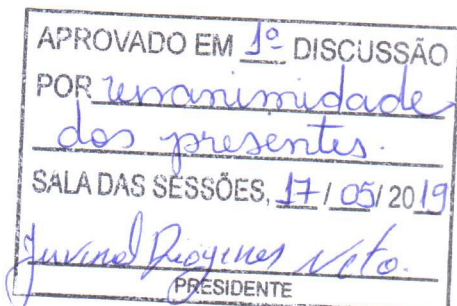 APROVADO EM 1º DISCUSSÃO
POR unanimidade
dos presentes.
SALA DAS SESSÕES, 17 / 05 / 2019
Juvenal Diógenes Neto.
PRESIDENTE